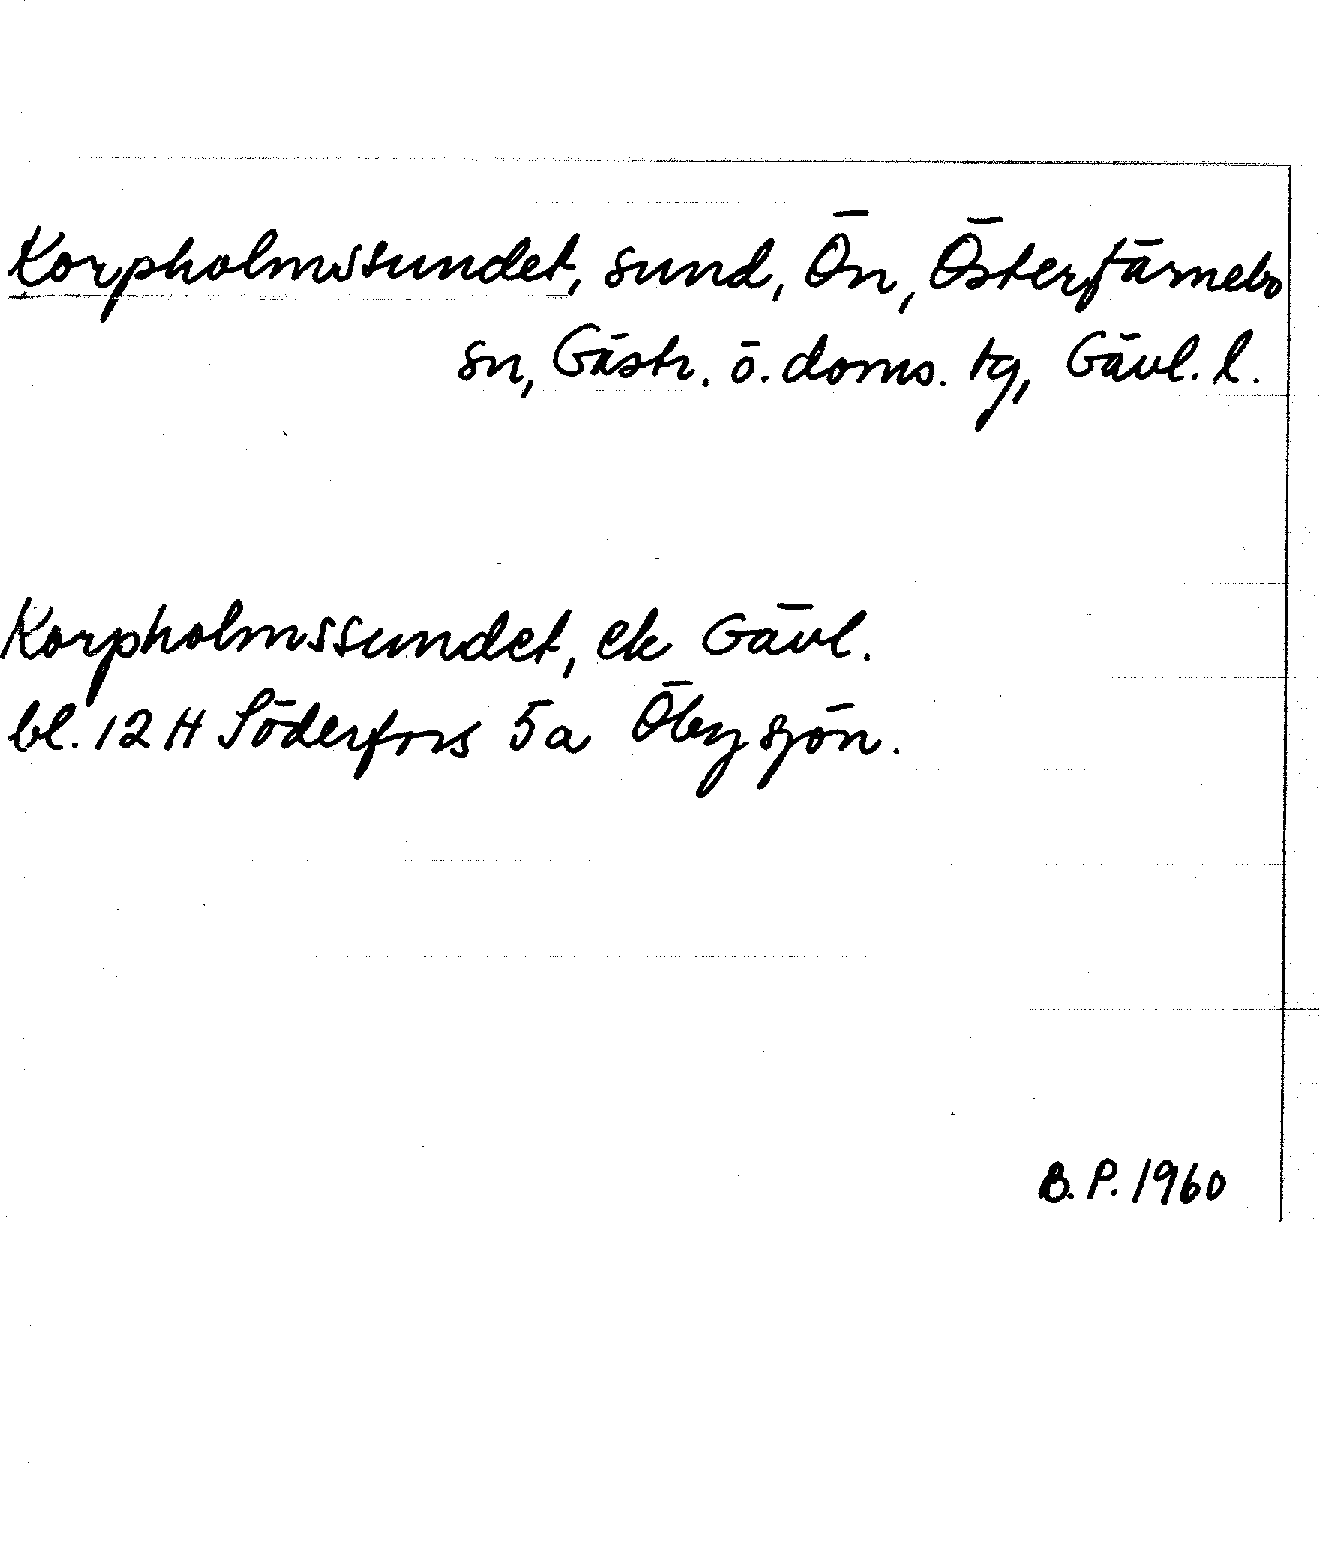 Korpholmssundet, sund, Ön, Österfärnebo
sn, Gästr. ö. doms. tg, Gävl. l.
Korpholmssundet, ek Gävl.
bl. 12 H Söderfors 5a Öbysjön.
B. P. 1960